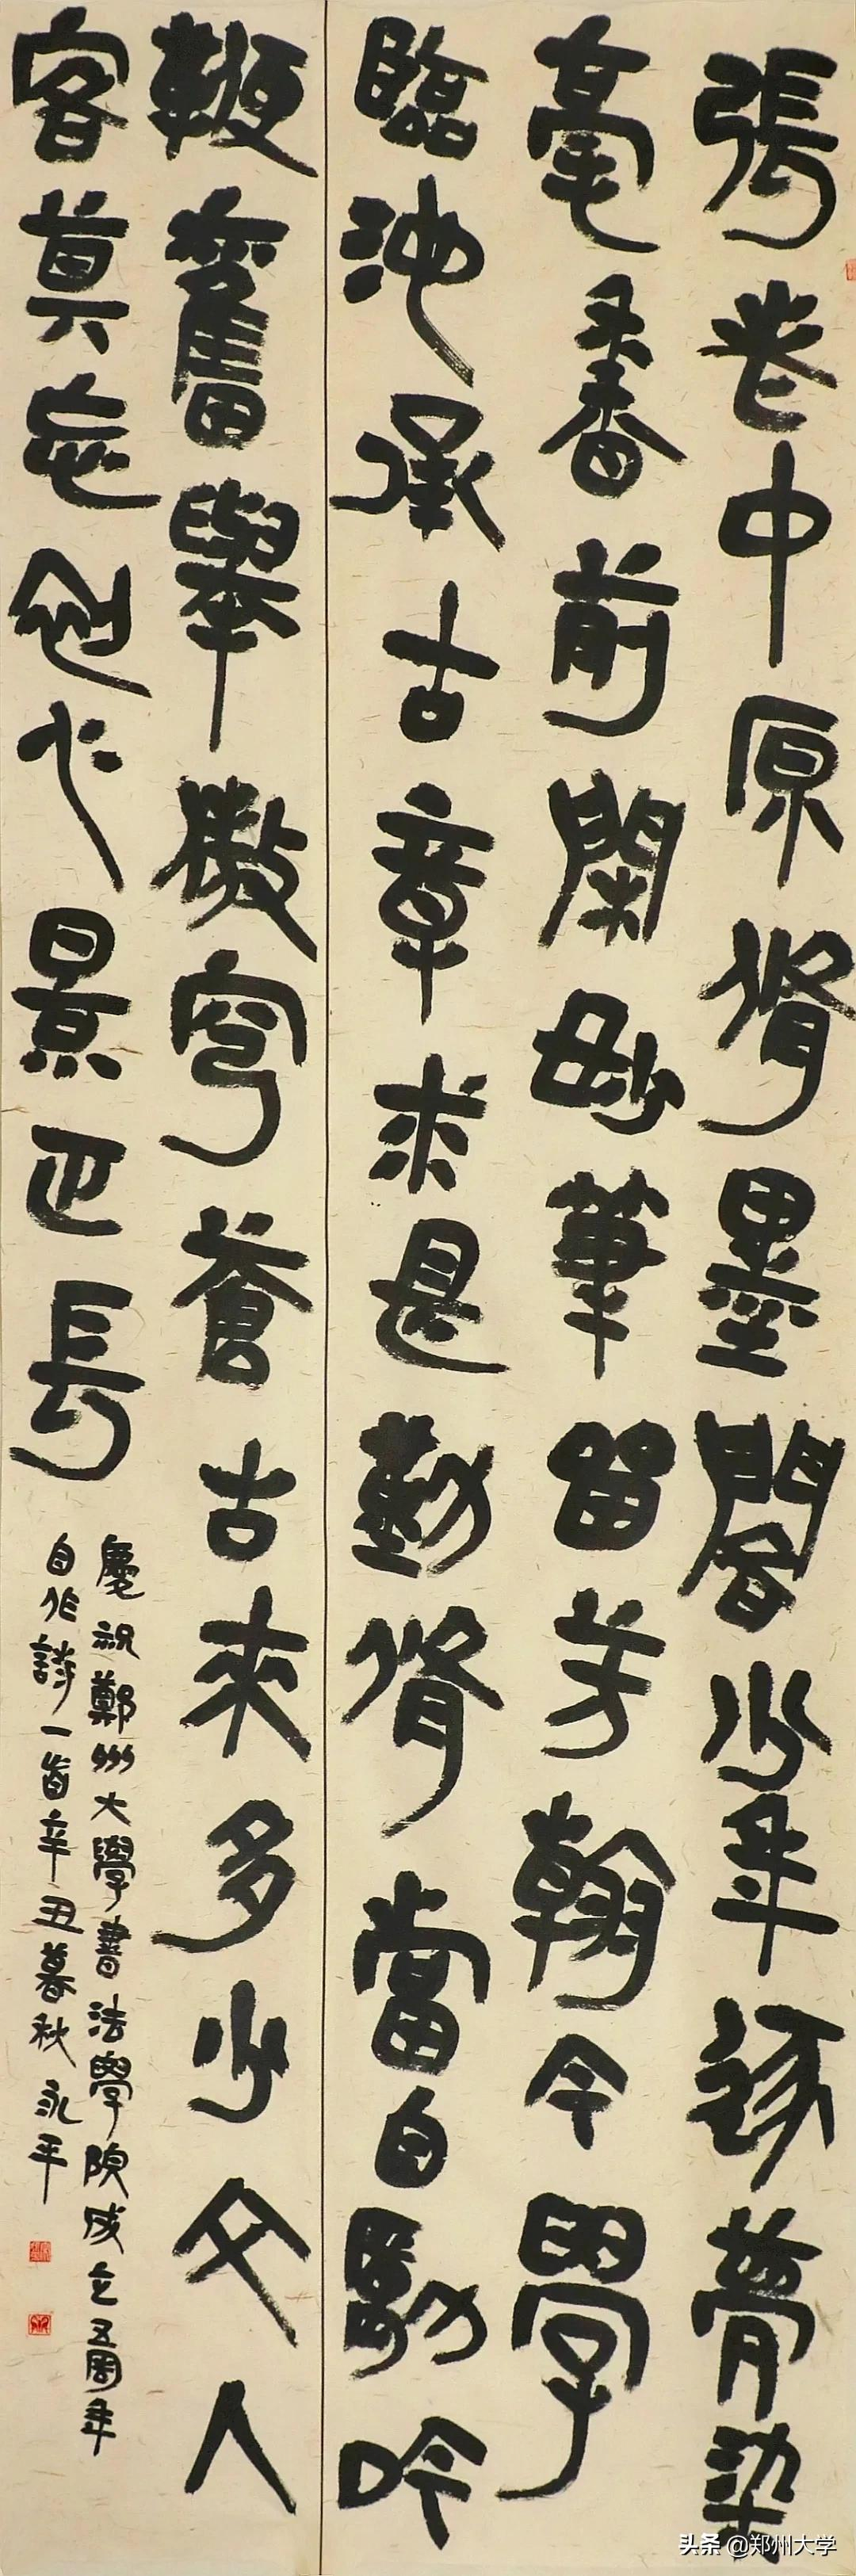 張老中原脩墨閣少年逐夢染
毫香前閑妙筆留芳翰今學
臨池承古章求是勤脩當自勵吟
鞭奮舉徹穹蒼古來多少文人
客莫忘初心景正長
慶祝鄭州大學書法學院成立五周年
自作詩一首辛丑暮秋永平
头条 @郑州大学